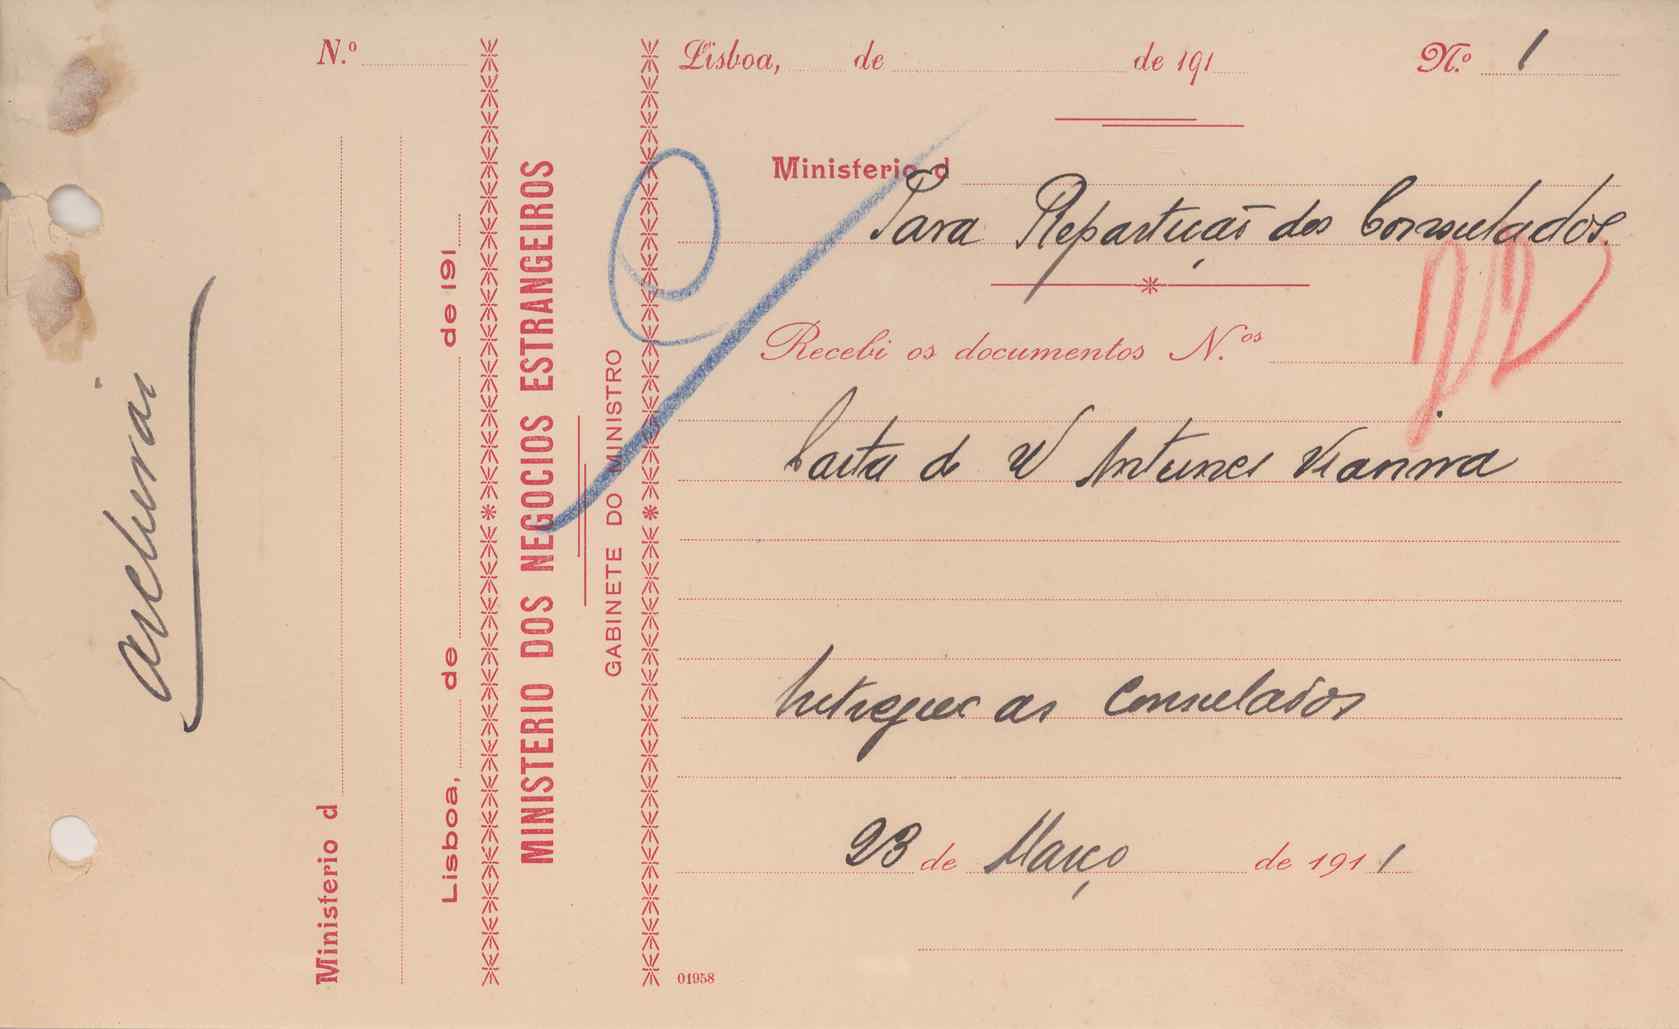 archivar
N.º
Ministerio d
Lisboa, de de 191
MINISTERIO DOS NEGOCIOS ESTRANGEIROS
GABINETE DO MINISTRO
Lisboa, de de 191
N.º 1
Ministerio d
Para Repartição dos Consulados.
Recebi os documentos N.os
Carta de W Antunes Vianna
Entregue aos Consulados
23 de Março de 1911
01958